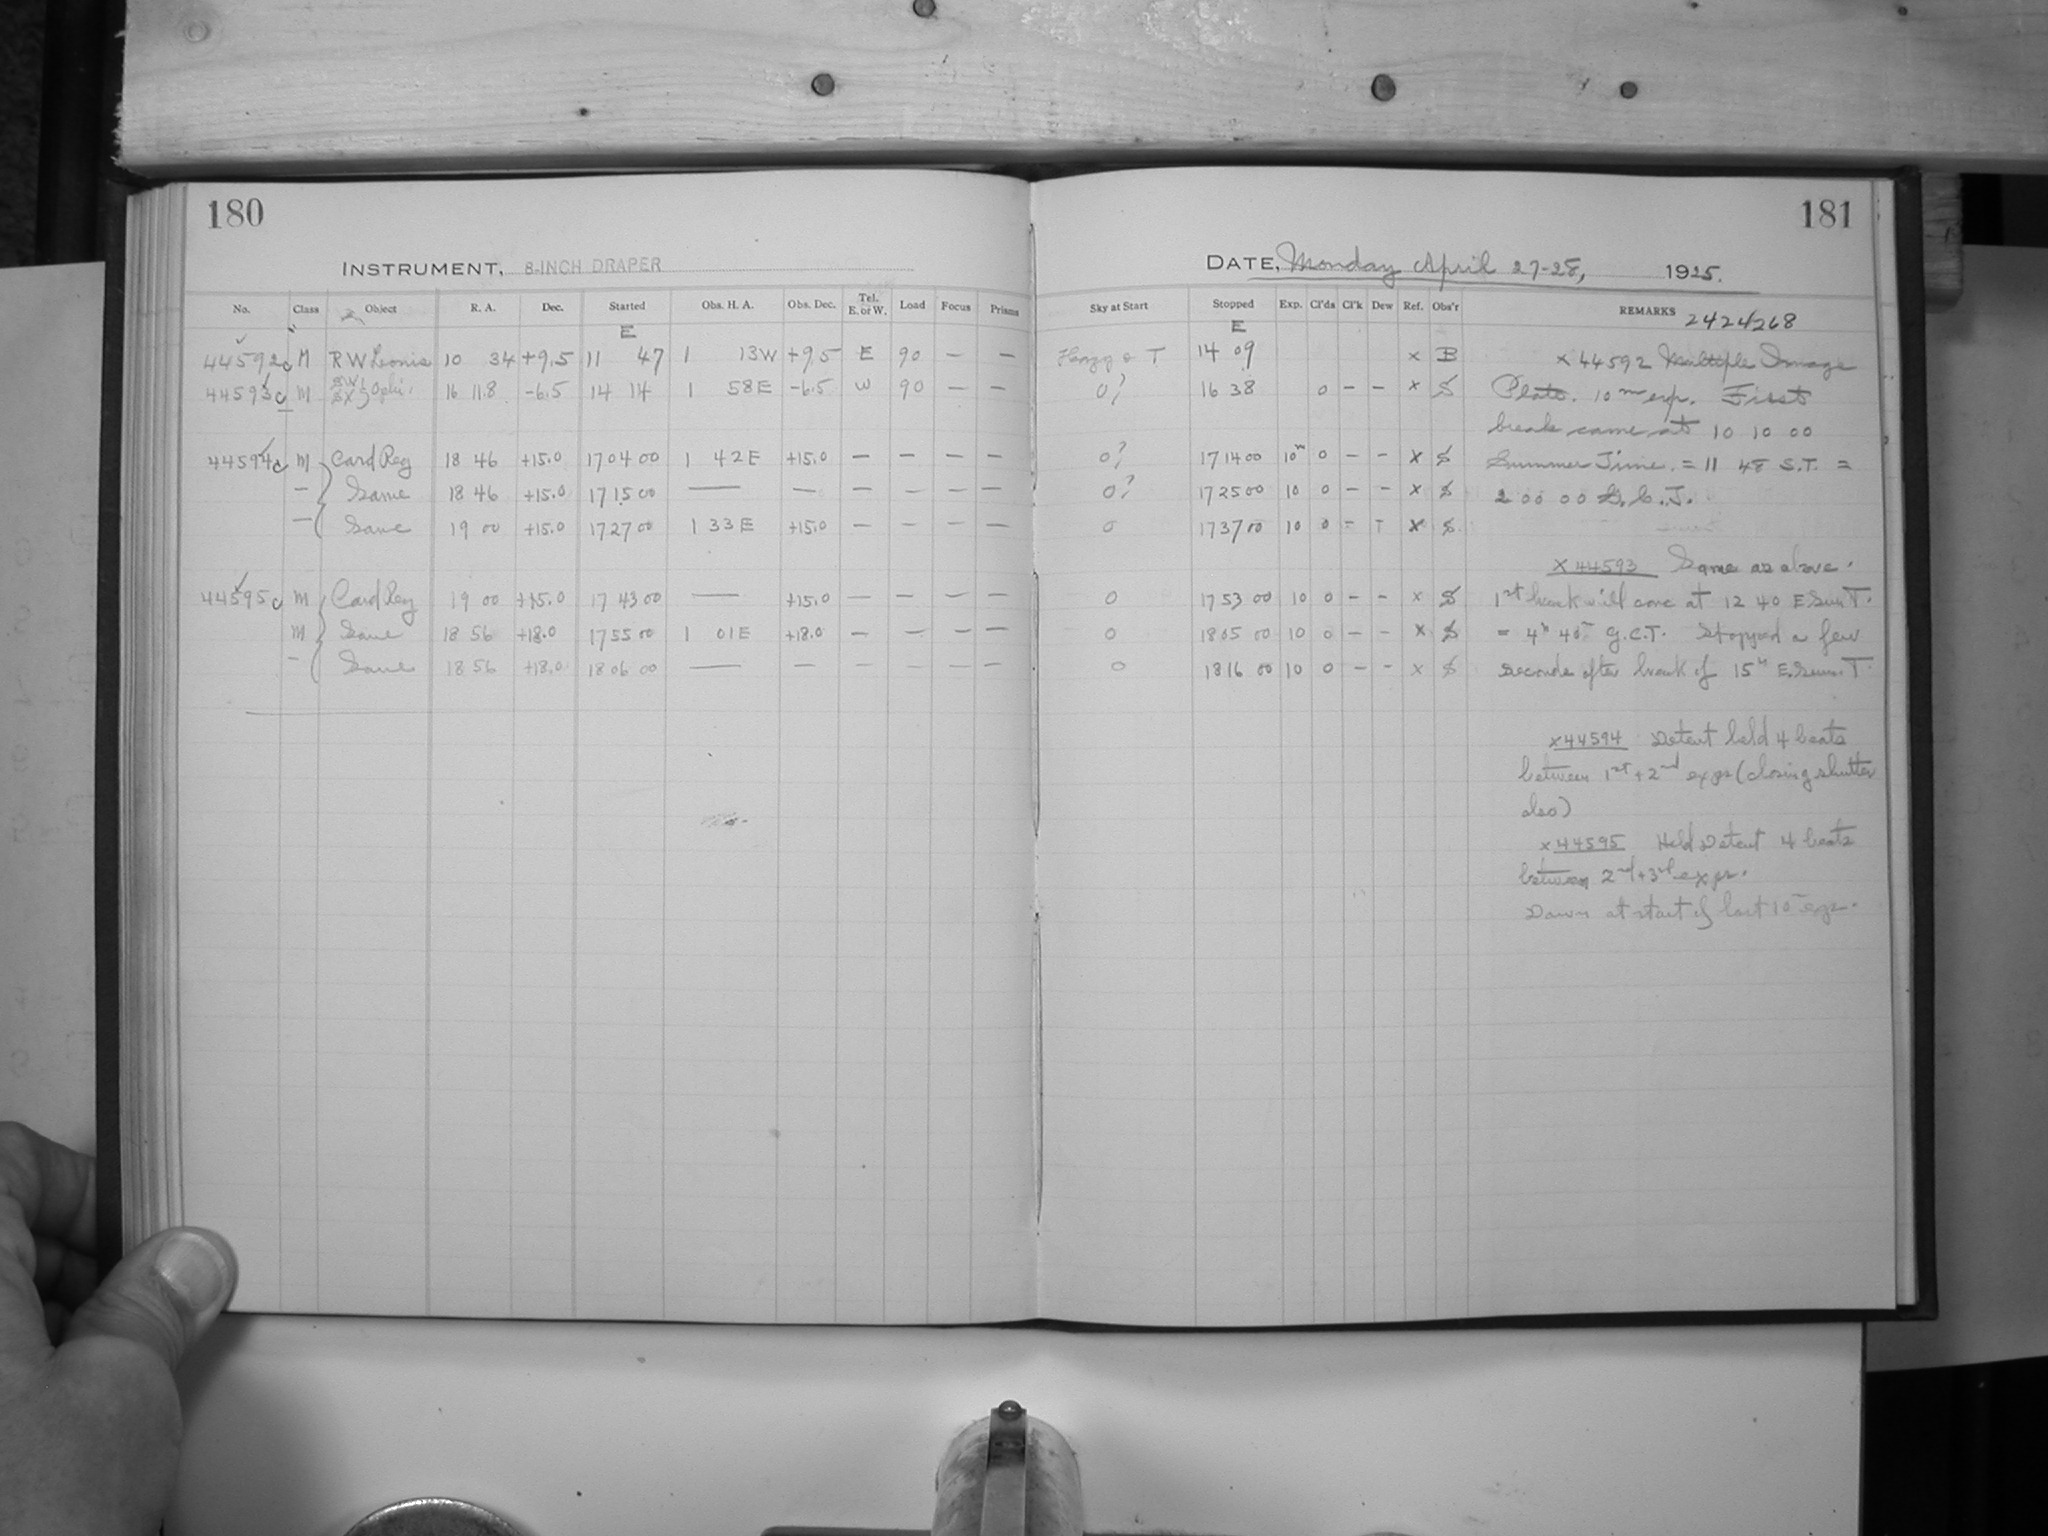 180
181
INSTRUMENT, 8-INCH DRAPER
DATE, Monday April 27-28, 1925.
No. Class Object R. A. Dec. Started Obs. H. A. Obs. Dec. Tel. E. or W. Load Focus Prisms Sky at Start Stopped Exp. Cl'ds Cl'k Dew Ref. Obs'r REMARKS 2424268
E E
44592c M RW Leonis 10 34 +9.5 11 47 1 13W +9.5 E 90 — — T 14 09 x B x 44592 Multiple Image
44593c M Ophi. 16 11.8 -6.5 14 14 1 58E -6.5 W 90 — — 0? 16 38 0 — — x S Plate. 10m exp. First
break came at 10 10 00
44594c M Card Reg 18 46 +15.0 17 04 00 1 42E +15.0 — — — — 0? 17 14 00 10m 0 — — x S Summer Time. = 11 48 S.T. =
— Same 18 46 +15.0 17 15 00 — — — — — — 0? 17 25 00 10 0 — — x S 2 00 00 G.C.T.
— Same 19 00 +15.0 17 27 00 1 33E +15.0 — — — — 0 17 37 00 10 0 — — x S
x 44593 Same as above.
44595c M Card Reg 19 00 +15.0 17 43 00 — +15.0 — — — — 0 17 53 00 10 0 — — x S 1st break will come at 12 40 E Sum T.
M Same 18 56 +18.0 17 55 00 1 01E +18.0 — — — — 0 18 05 00 10 0 — — x S = 4h 40m G.C.T. Stopped a few
— Same 18 56 +18.0 18 06 00 — — — — — — 0 18 16 00 10 0 — — x S seconds after break of 15h E. Sum. T.
x 44594 Detent held 4 beats
between 1st + 2nd exps (closing shutter
also)
x 44595 Held Detent 4 beats
between 2nd + 3rd exps.
Dawn at start of last 10m exp.